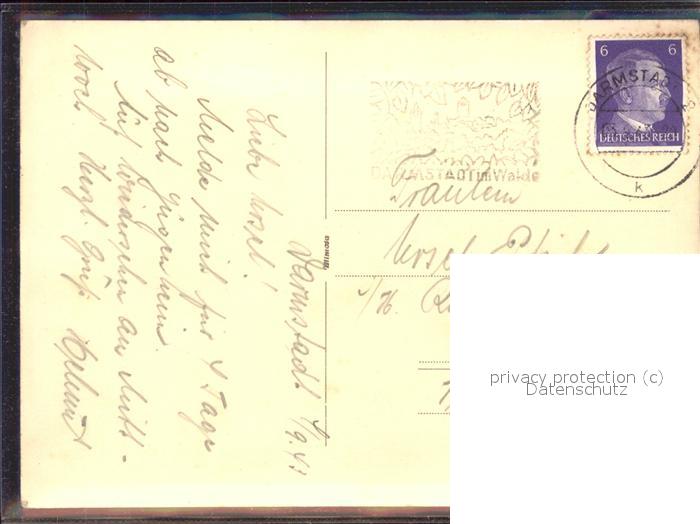 Darmstadt 1/9.43
Liebe Ursel!
Melde mich für 4 Tage
ab nach Jugenheim.
Auf Wiedersehen am Mitt-
woch. Herzl. Gruß Helmut
6 6
DEUTSCHES REICH
DARMSTADT
k
DARMSTADT im Walde
Fräulein
Ursel
privacy protection (c)
Datenschutz